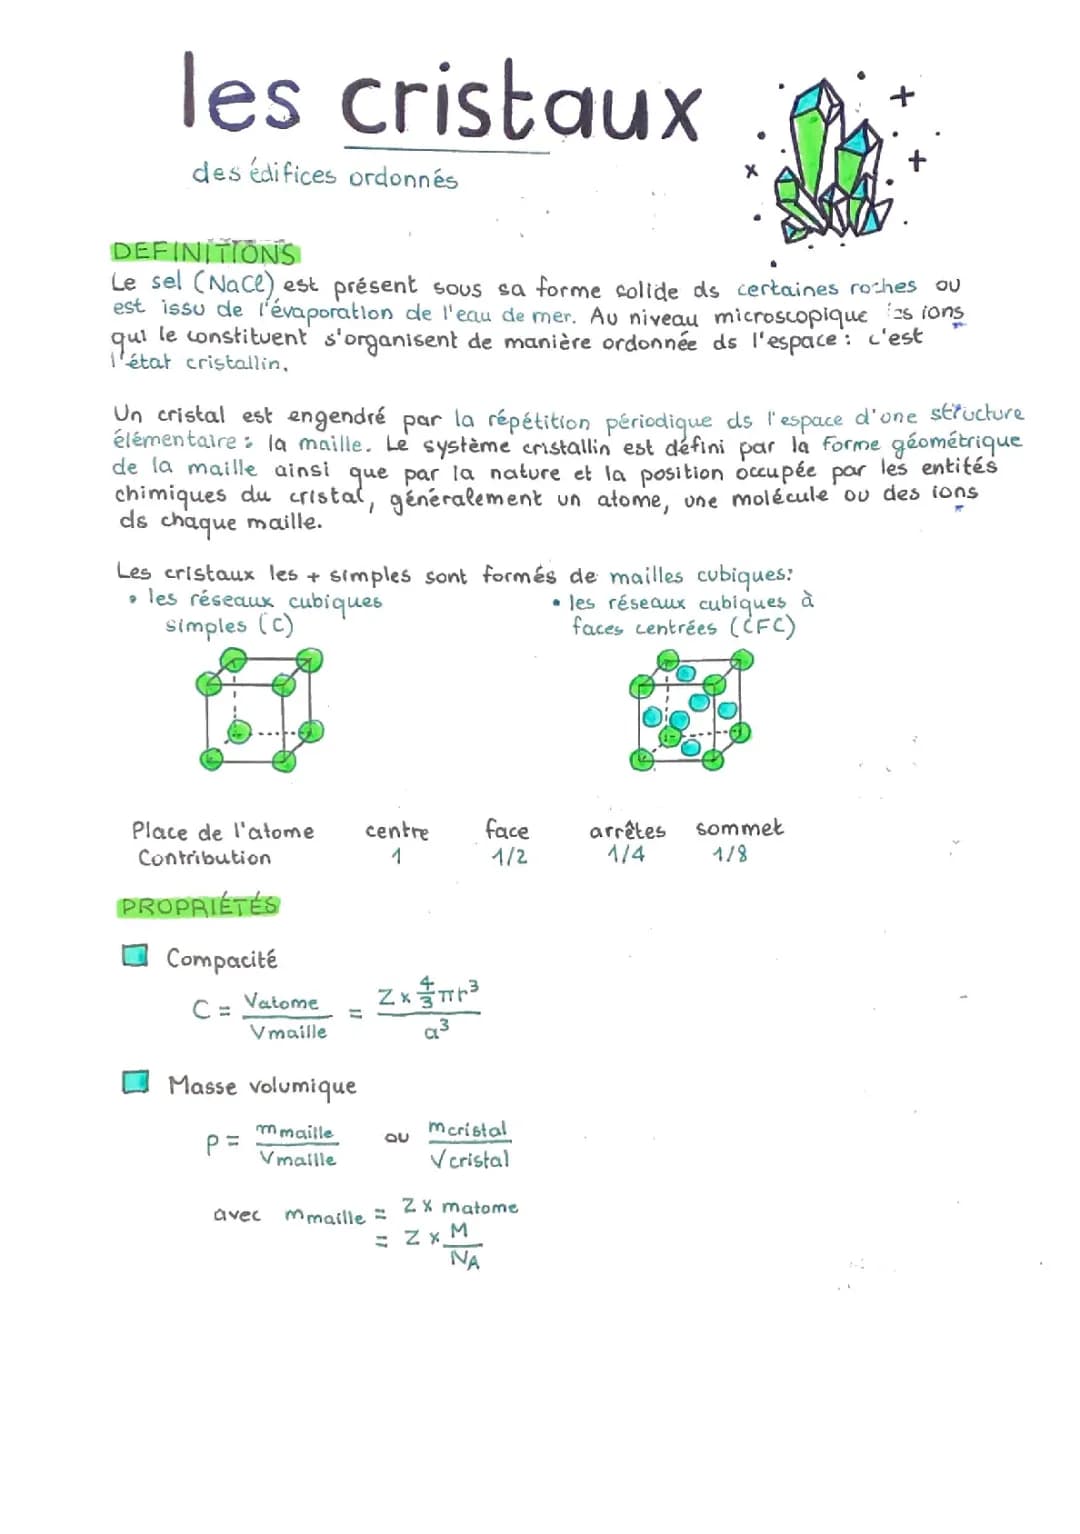 les cristaux
des édifices ordonnés
DEFINITIONS
Le sel (NaCl) est présent sous sa forme solide ds certaines roches ou
est issu de l'évaporation de l'eau de mer. Au niveau microscopique les ions
qui le constituent s'organisent de manière ordonnée ds l'espace : c'est
l'état cristallin.
Un cristal est engendré par la répétition périodique ds l'espace d'une structure
élémentaire : la maille. Le système cristallin est défini par la forme géométrique
de la maille ainsi que par la nature et la position occupée par les entités
chimiques du cristal, généralement un atome, une molécule ou des ions
ds chaque maille.
Les cristaux les + simples sont formés de mailles cubiques :
• les réseaux cubiques
simples (C)
• les réseaux cubiques à
faces centrées (CFC)
Place de l'atome centre face arrêtes sommet
Contribution 1 1/2 1/4 1/8
PROPRIÉTÉS
Compacité
C = Vatome / Vmaille = Z × 4/3 πr³ / a³
Masse volumique
ρ = mmaille / Vmaille ou mcristal / Vcristal
avec mmaille = Z × matome
= Z × M / NA